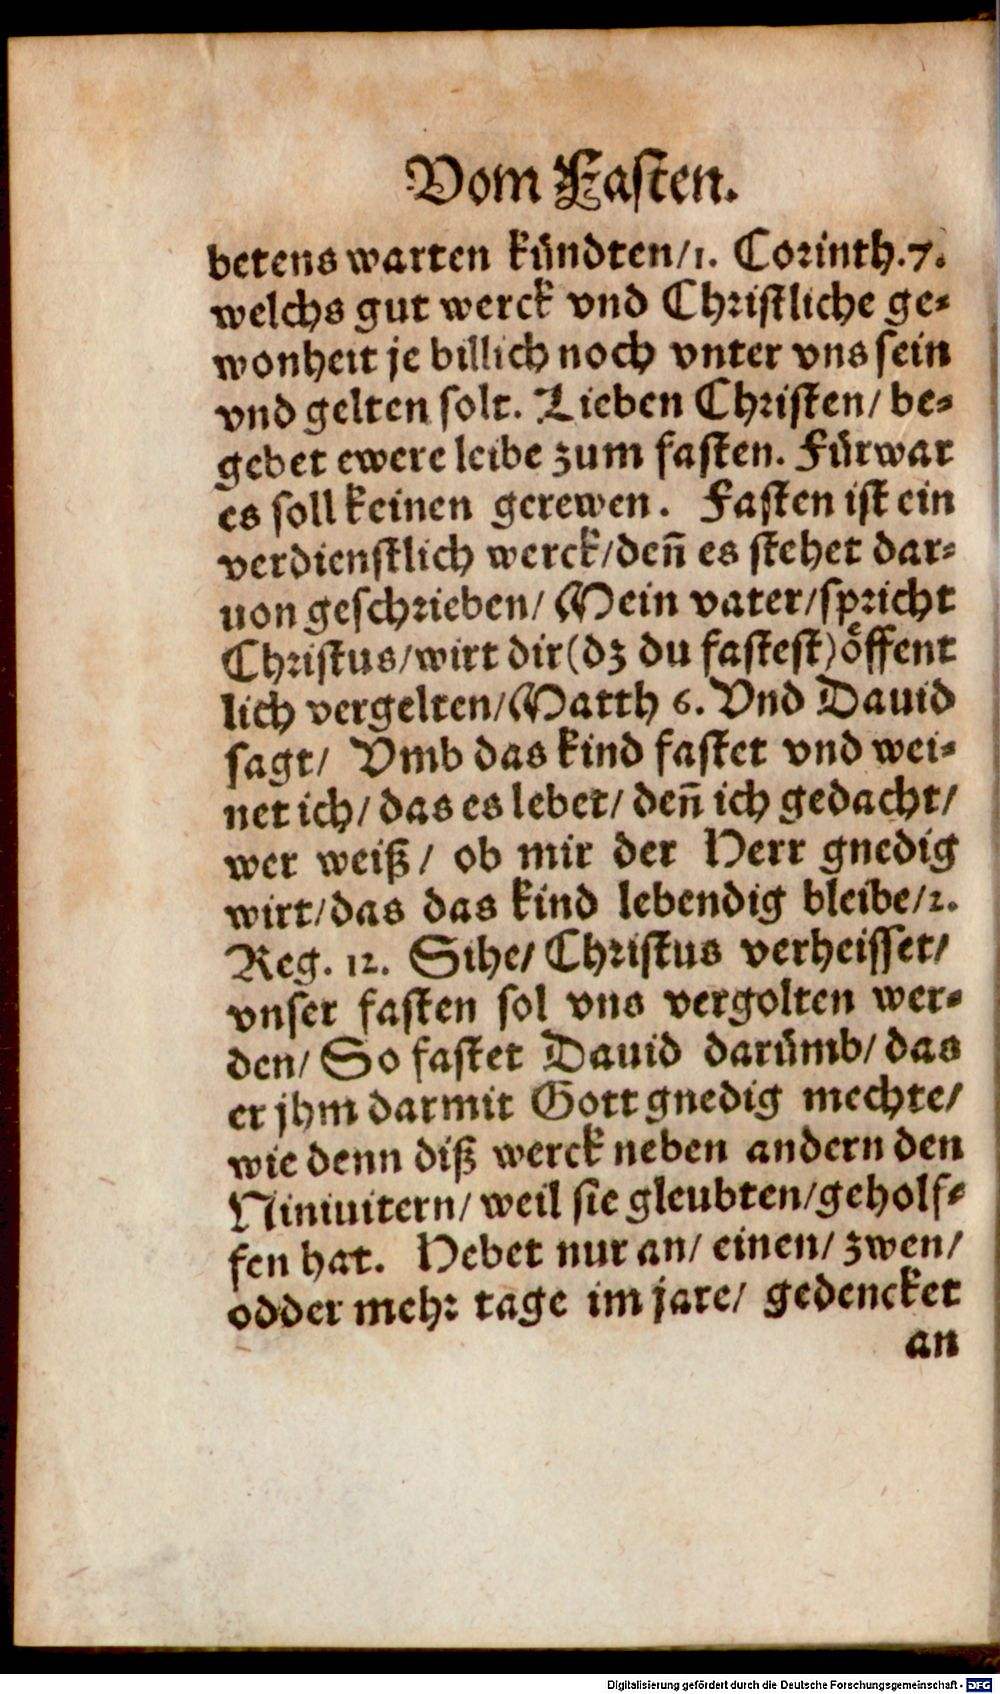 Vom Fasten.
betens warten kündten/1. Corinth.7.
welchs gut werck vnd Christliche ge-
wonheit je billich noch vnter vns sein
vnd gelten solt. Lieben Christen/ be-
gebet ewere leibe zum fasten. Fürwar
es soll keinen gerewen. Fasten ist ein
verdienstlich werck/deñ es stehet dar-
uon geschrieben/ Mein vater/spricht
Christus/wirt dir(dz du fastest)öffent
lich vergelten/Matth 6. Vnd Dauid
sagt/ Vmb das kind fastet vnd wei-
net ich/ das es lebet/ deñ ich gedacht/
wer weiß/ ob mir der Herr gnedig
wirt/das das kind lebendig bleibe/2.
Reg. 12. Sihe/ Christus verheisset/
vnser fasten sol vns vergolten wer-
den/ So fastet Dauid darümb/ das
er jhm darmit Gott gnedig mechte/
wie denn diß werck neben andern den
Niniuitern/ weil sie gleubten/geholf-
fen hat. Hebet nur an/ einen/ zwen/
odder mehr tage im jare/ gedencket
an
Digitalisierung gefördert durch die Deutsche Forschungsgemeinschaft - DFG